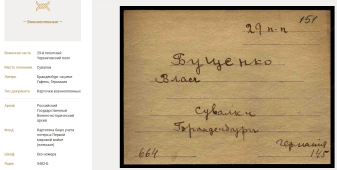 Военнопленные
Воинская часть 29-й пехотный Черниговский полк
Место пленения Сувалки
Лагерь Бранденбург-на-Гавеле, Германия
Тип документа Карточки военнопленных
Архив Российский Государственный Военно-исторический архив
Фонд Картотека бюро учета потерь в Первой мировой войне
Шкаф Без номера
Ящик
29 п-п
151
Бущенко
Влас
Сувалки
Бранденбург
Германия
664
145